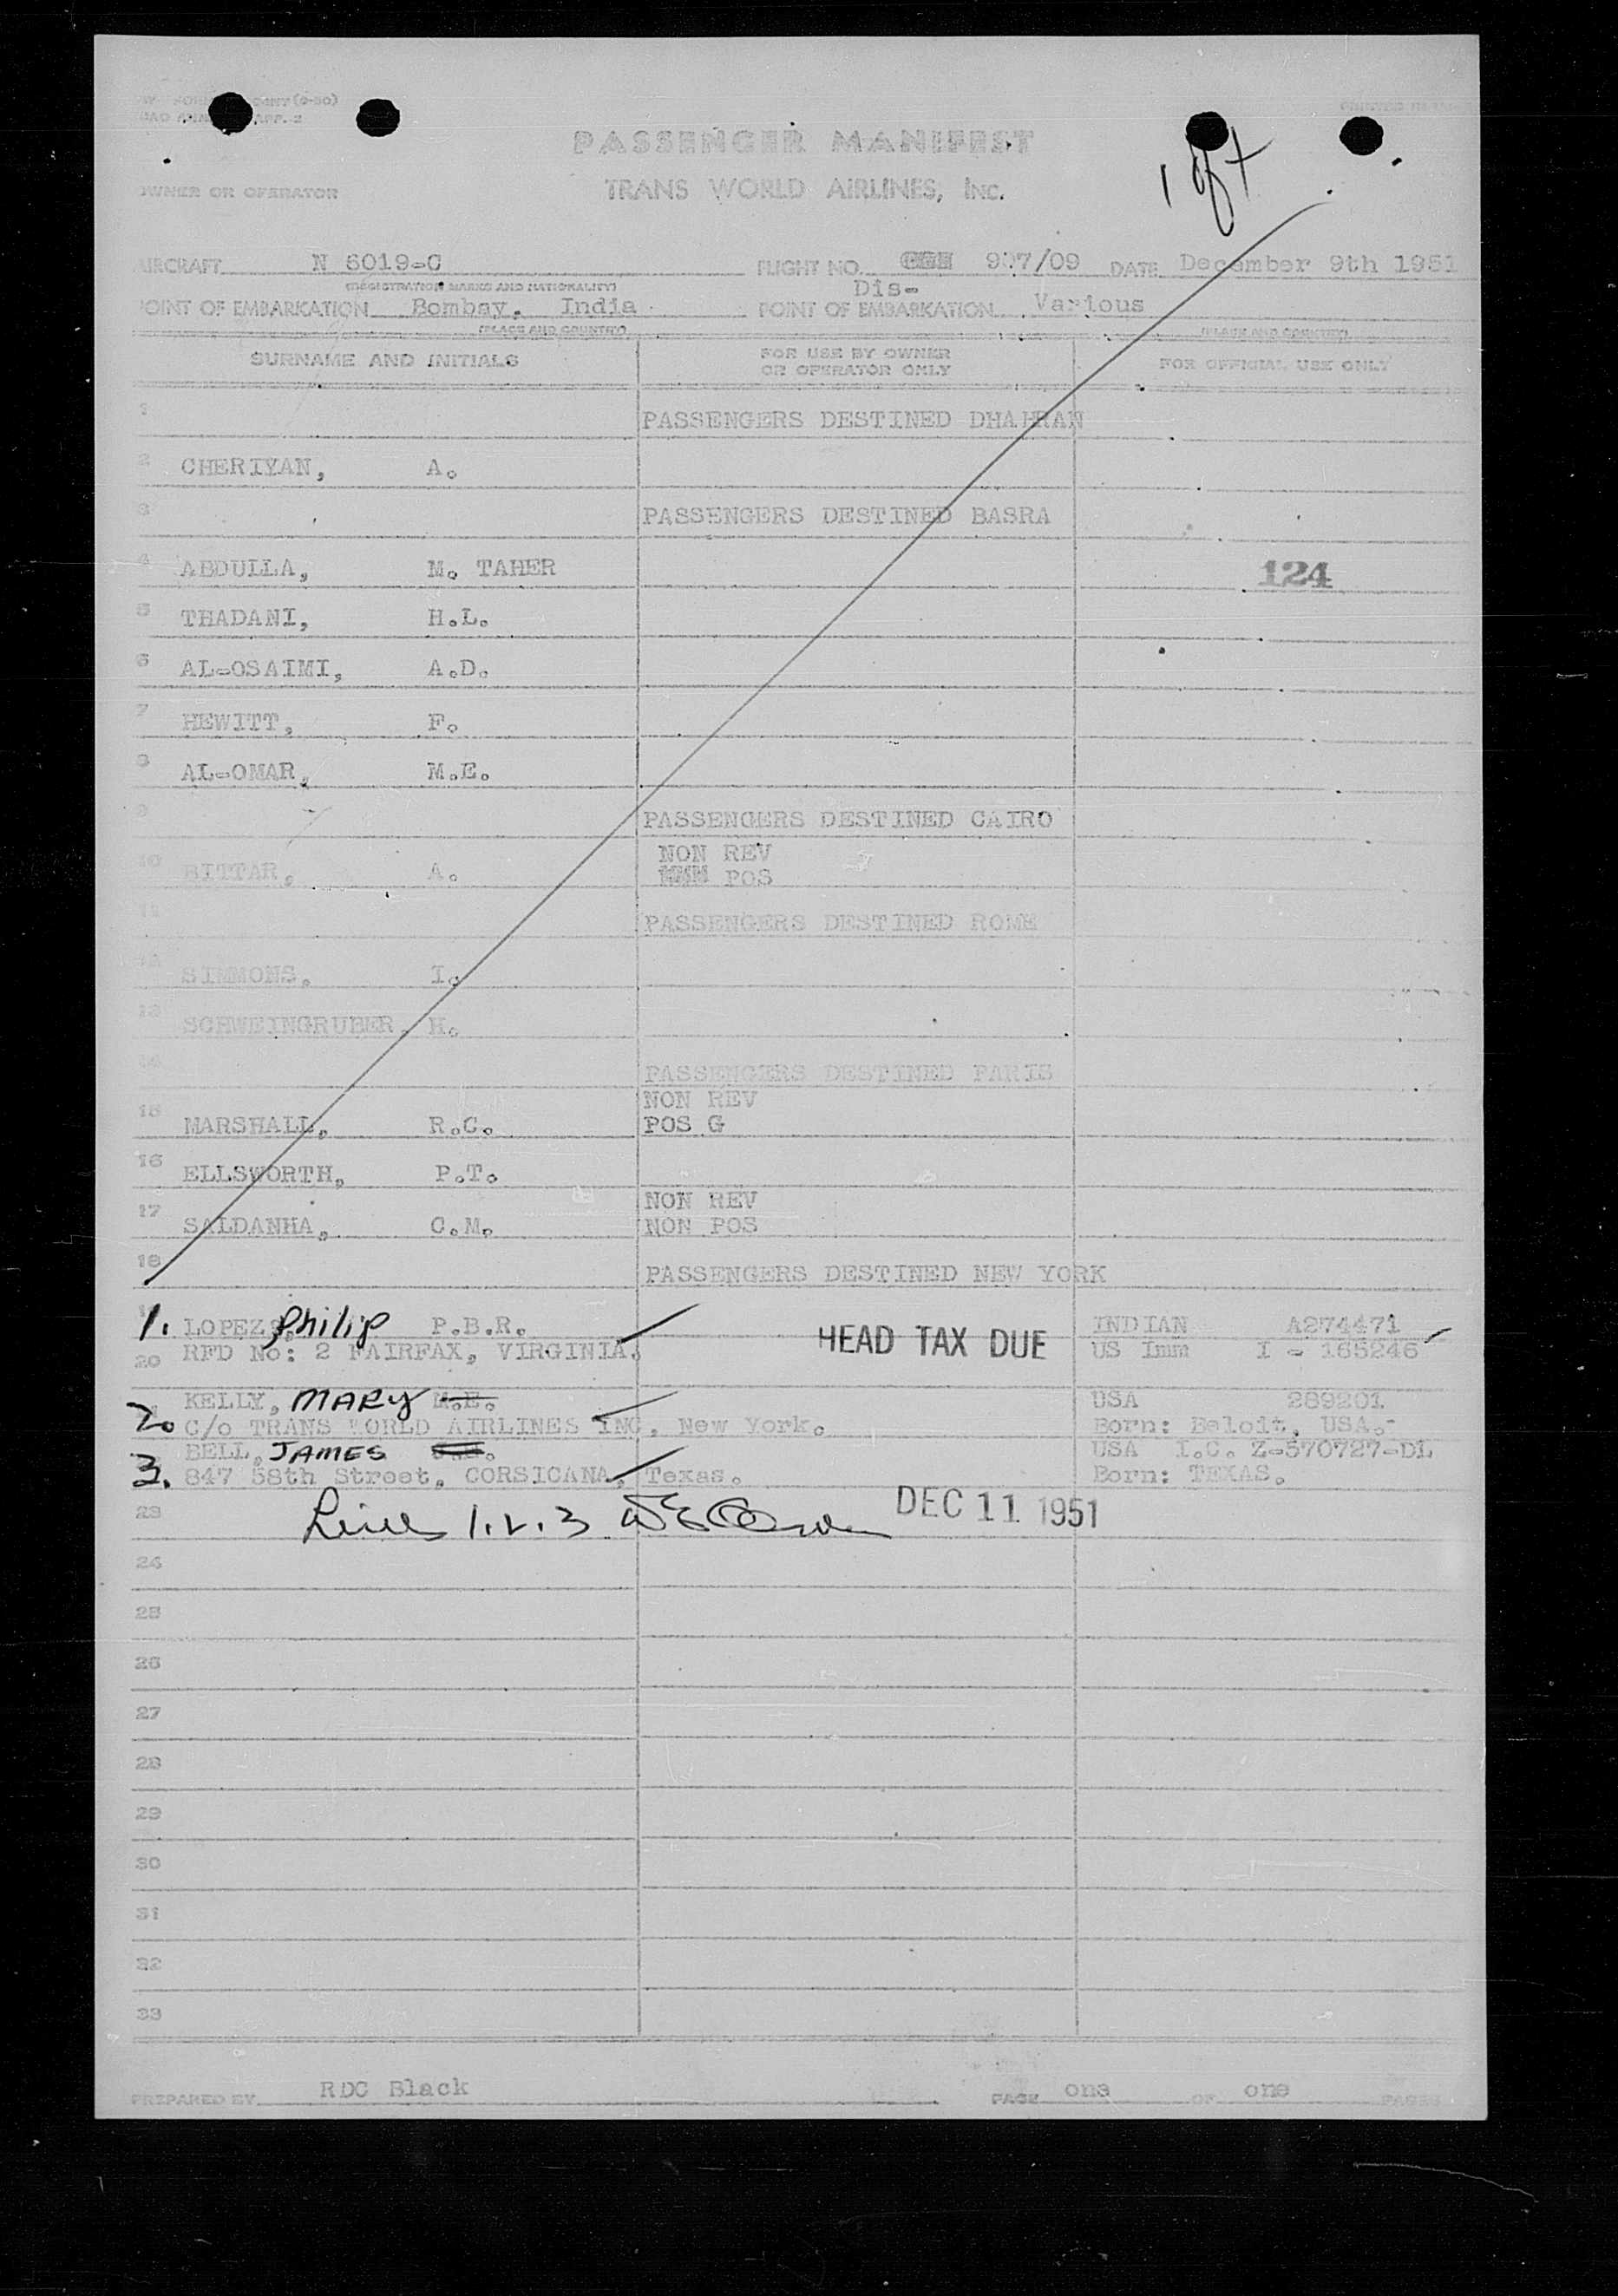 PASSENGER MANIFEST
OWNER OR OPERATOR TRANS WORLD AIRLINES, Inc.
AIRCRAFT N 6019-C FLIGHT NO. 907/09 DATE December 9th 1951
(REGISTRATION MARKS AND NATIONALITY) Dis-
POINT OF EMBARKATION Bombay, India POINT OF EMBARKATION Various
(PLACE AND COUNTRY) (PLACE AND COUNTRY)
SURNAME AND INITIALS FOR USE BY OWNER OR OPERATOR ONLY FOR OFFICIAL USE ONLY
1 PASSENGERS DESTINED DHAHRAN
2 CHERIYAN, A.
3 PASSENGERS DESTINED BASRA
4 ABDULLA, M. TAHER 124
5 THADANI, H.L.
6 AL-OSAIMI, A.D.
7 HEWITT, F.
8 AL-OMAR, M.E.
9 PASSENGERS DESTINED CAIRO
NON REV
10 BITTAR, A. POS
11 PASSENGERS DESTINED ROME
12 SIMMONS, I.
13 SCHWEINGRUBER, H.
14 PASSENGERS DESTINED PARIS
NON REV
15 MARSHALL, R.C. POS G
16 ELLSWORTH, P.T.
NON REV
17 SALDANHA, C.M. NON POS
18 PASSENGERS DESTINED NEW YORK
1. LOPEZ, Philip P.B.R. HEAD TAX DUE INDIAN A274471
20 RFD No: 2 FAIRFAX, VIRGINIA. US Imm I - 165246
KELLY, MARY M.E. USA 289201
2. C/o TRANS WORLD AIRLINES INC, New York. Born: Beloit, USA.-
BELL, JAMES USA I.C. Z-570727-DL
3. 847 58th Street, CORSICANA, Texas. Born: TEXAS.
23 Lines 1.2.3 DEC 11 1951
24
25
26
27
28
29
30
31
32
33
PREPARED BY RDC Black PAGE one OF one PAGES